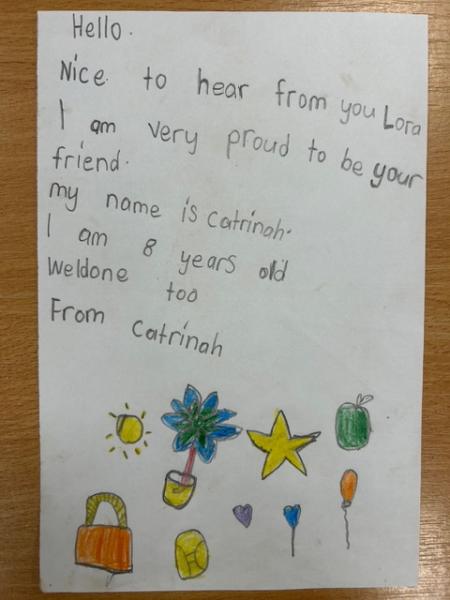 Hello.
Nice to hear from you Lora
I am very proud to be your
friend.
my name is Catrinah.
I am 8 years old
Weldone too
From Catrinah